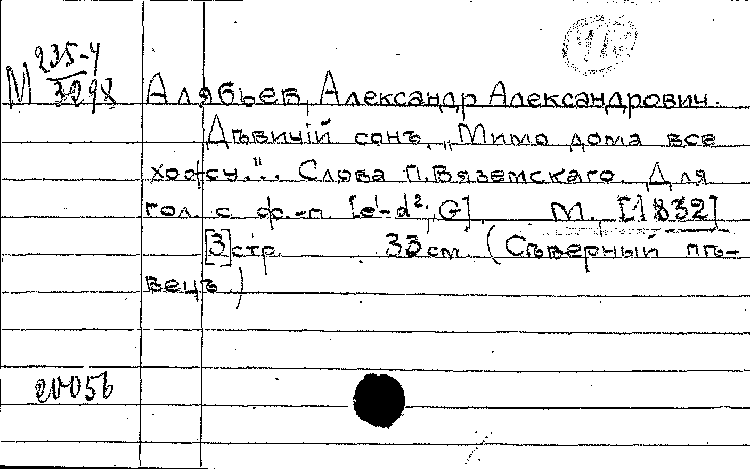 М 235-4
3098
Алябьев, Александр Александрович.
Дѣвичій сонъ. „Мимо дома все
хожу.". Слова П. Вяземскаго. Для
гол. с ф.-п. [e'-d²; G]. М. [1832]
[3] стр. 33 см. (Сѣверный пѣ-
вецъ.)
20056